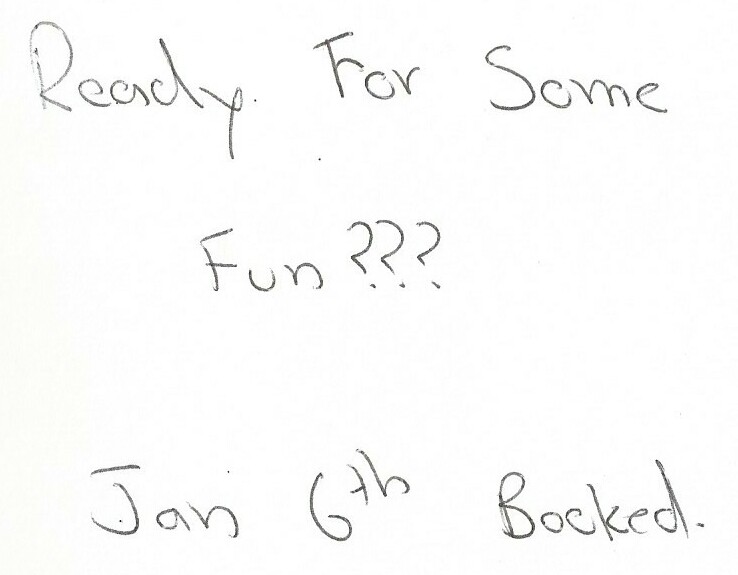 Ready For Some
Fun???
Jan 6th Booked.